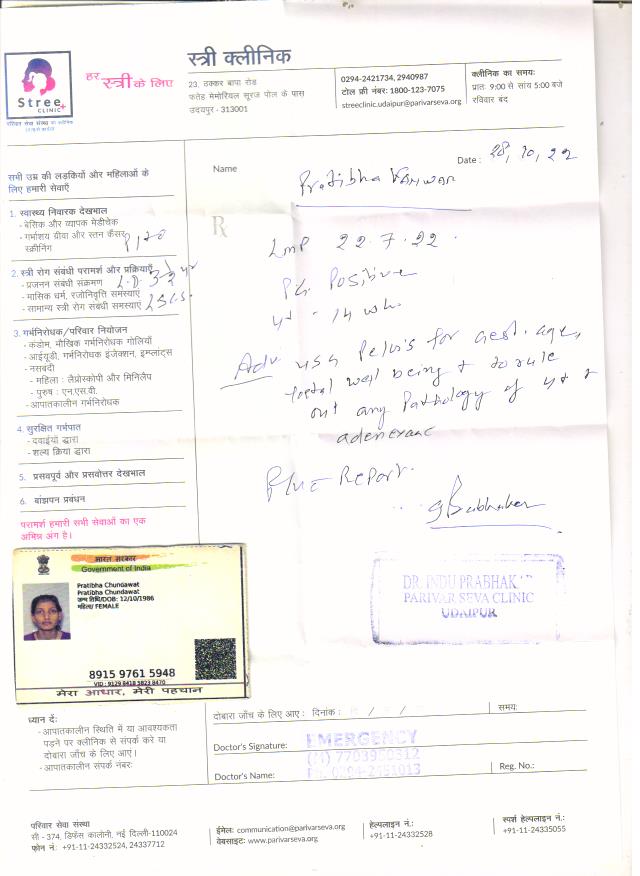 Stree+
CLINIC
परिवार सेवा संस्था का क्लीनिक
हर स्त्री के लिए
स्त्री क्लीनिक
23, ठक्कर बापा रोड
फतेह मेमोरियल सूरज पोल के पास
उदयपुर - 313001
0294-2421734, 2940987
टोल फ्री नंबर: 1800-123-7075
streeclinic.udaipur@parivarseva.org
क्लीनिक का समय:
प्रातः 9:00 से सांय 5:00 बजे
रविवार बंद
Date : 28, 10, 22
Name Pratibha Kanwar
सभी उम्र की लड़कियों और महिलाओं के
लिए हमारी सेवाएँ
1. स्वास्थ्य निवारक देखभाल
- बेसिक और व्यापक मेडीचेक
- गर्भाशय ग्रीवा और स्तन कैंसर
स्क्रीनिंग
2. स्त्री रोग संबंधी परामर्श और प्रक्रियाएँ
- प्रजनन संबंधी संक्रमण
- मासिक धर्म, रजोनिवृत्ति समस्याएँ
- सामान्य स्त्री रोग संबंधी समस्याएँ
L.D. 3-2 yr
LSCS.
3. गर्भनिरोधक/परिवार नियोजन
- कंडोम, मौखिक गर्भनिरोधक गोलियाँ
- आईयूडी, गर्भनिरोधक इंजेक्शन, इम्प्लांट्स
- नसबंदी
- महिला : लैप्रोस्कोपी और मिनिलैप
- पुरुष : एन.एस.वी.
- आपातकालीन गर्भनिरोधक
4. सुरक्षित गर्भपात
- दवाईयों द्वारा
- शल्य क्रिया द्वारा
5. प्रसवपूर्व और प्रसवोत्तर देखभाल
6. बांझपन प्रबंधन
परामर्श हमारी सभी सेवाओं का एक
अभिन्न अंग है।
Rx
LMP 22.7.22.
Positive
ut - 14 wk.
Adv USG Pelvis for gest. age,
foetal well being & to rule
out any Pathology of ut &
Report.
DR. INDU PRABHAK
PARIVAR SEVA CLINIC
UDAIPUR
भारत सरकार
Government of India
Pratibha Chundawat
Pratibha Chundawat
जन्म तिथि/DOB: 12/10/1986
महिला/ FEMALE
8915 9761 5948
VID : 9129 8418 5823 8470
मेरा आधार, मेरी पहचान
ध्यान दें:
- आपातकालीन स्थिति में या आवश्यकता
पड़ने पर क्लीनिक से संपर्क करे या
दोबारा जाँच के लिए आए।
- आपातकालीन संपर्क नंबर:
दोबारा जाँच के लिए आए : दिनांक : / / समय:
Doctor's Signature:
EMERGENCY
Doctor's Name:
Reg. No.:
परिवार सेवा संस्था
सी - 374, डिफेंस कालोनी, नई दिल्ली-110024
फोन नं: +91-11-24332524, 24337712
ईमेल: communication@parivarseva.org
वेबसाइट: www.parivarseva.org
हेल्पलाइन नं.:
+91-11-24332528
स्पर्श हेल्पलाइन नं.:
+91-11-24335055